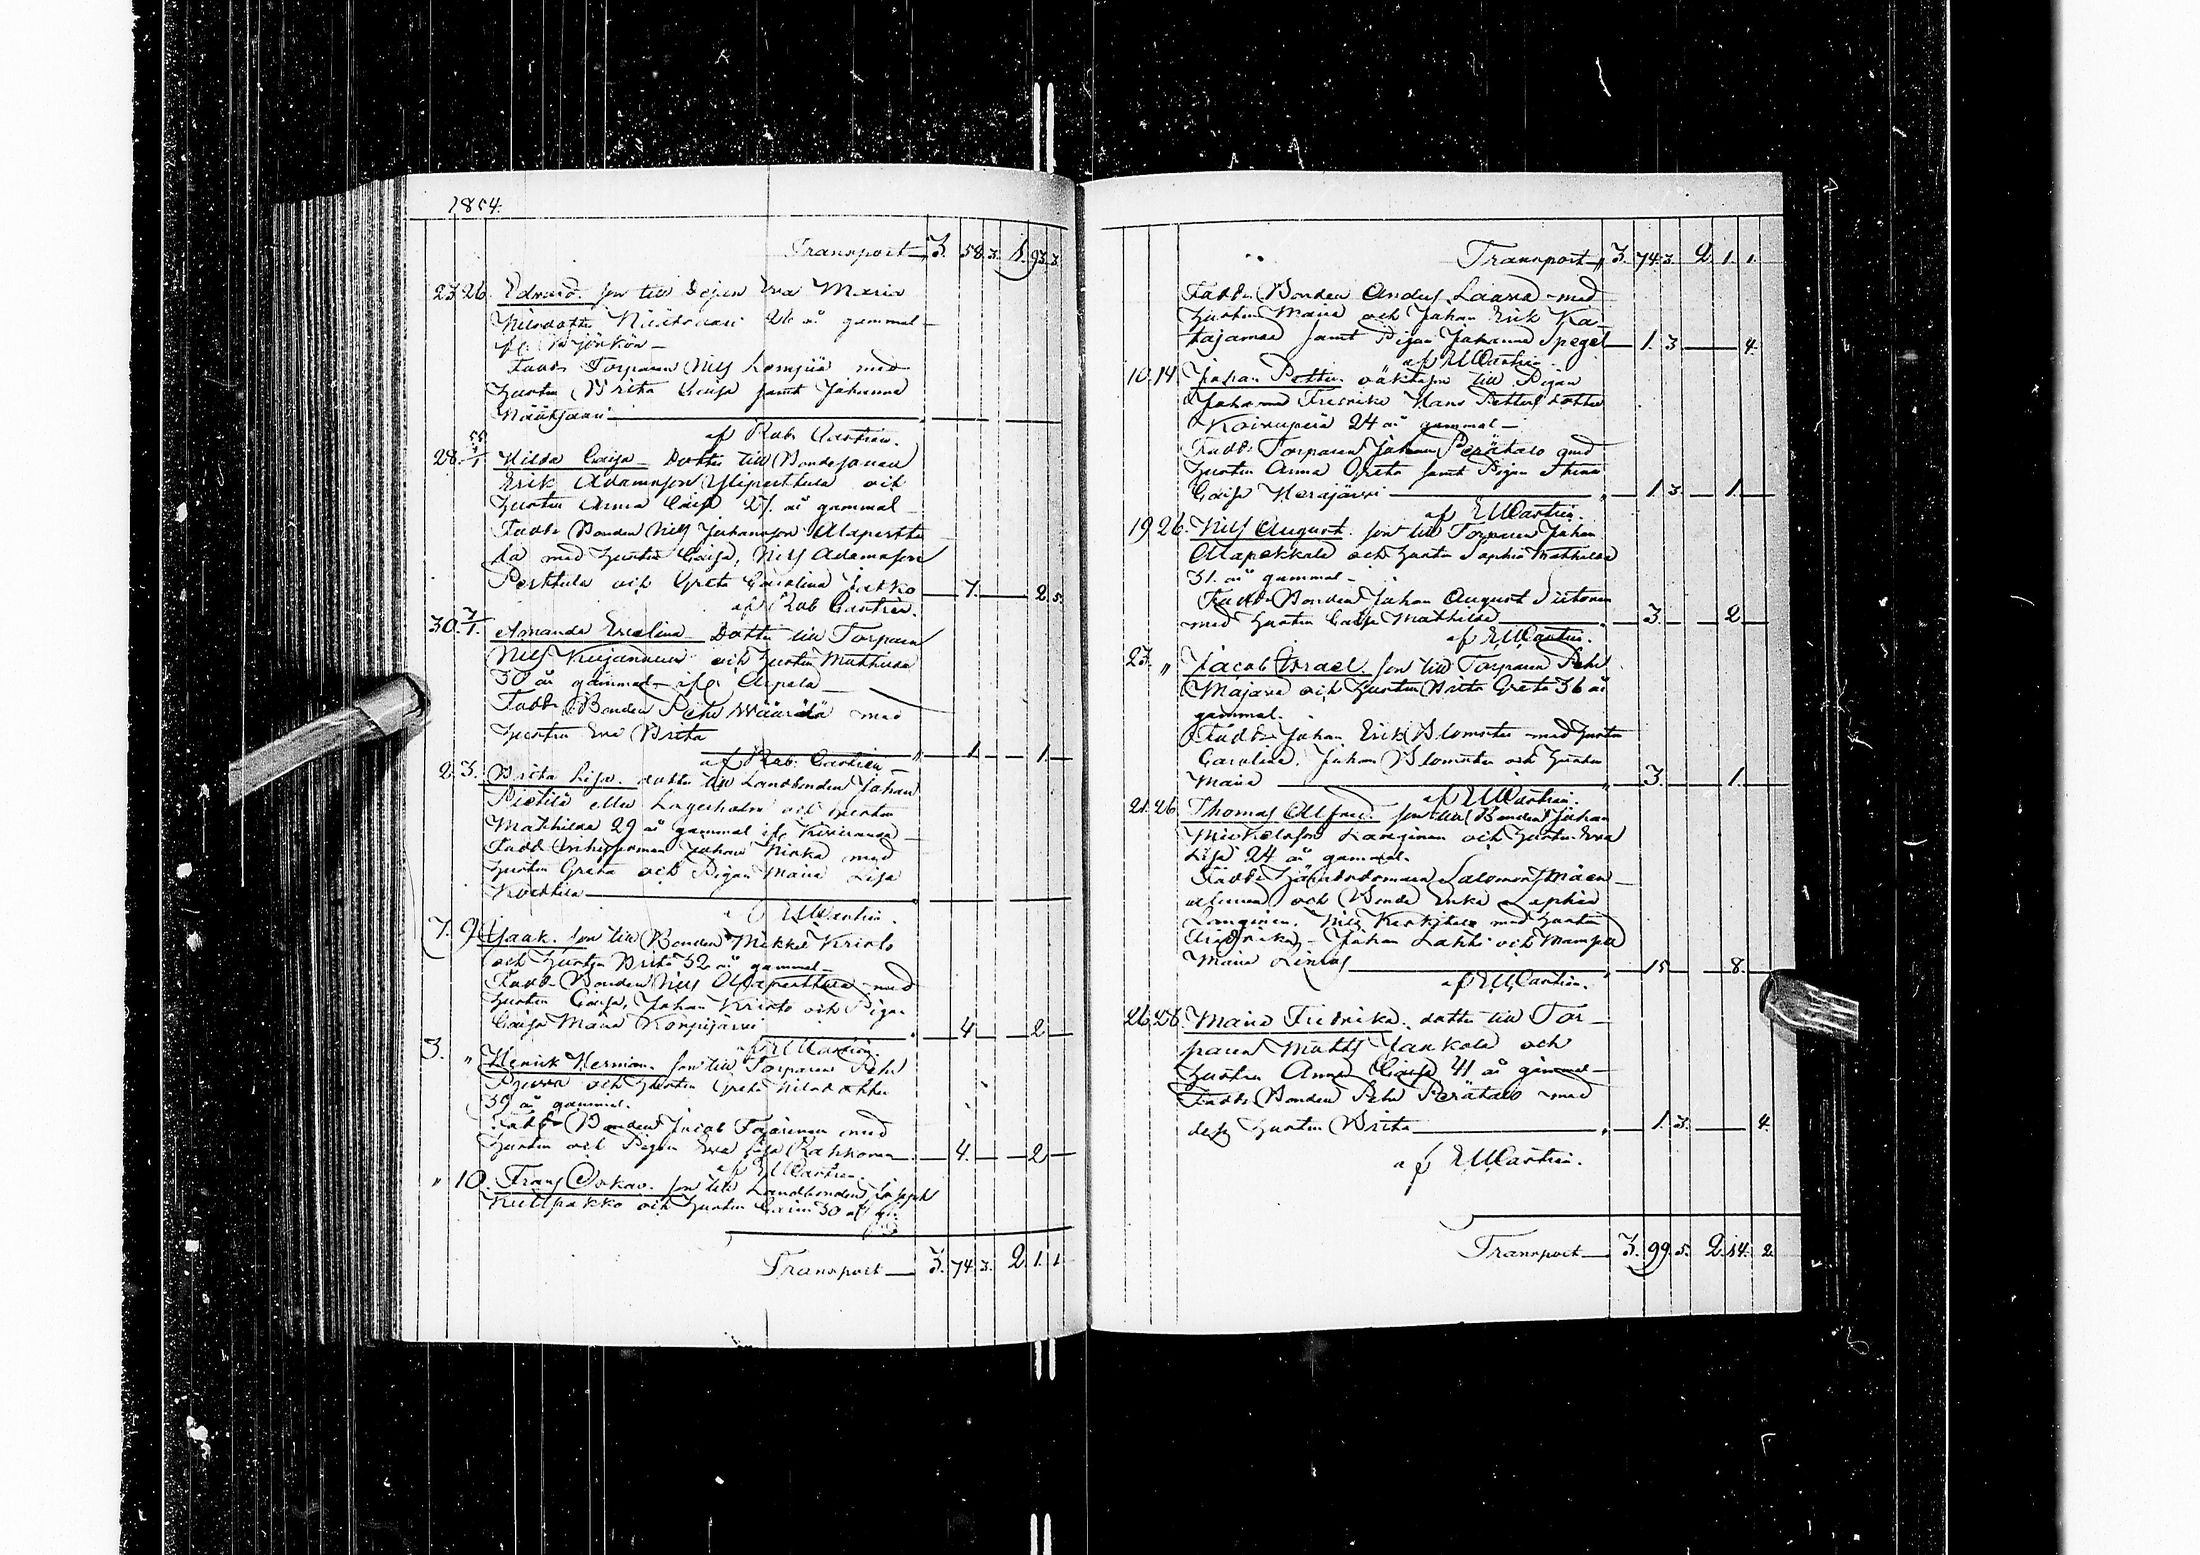 1854.
Transport 3. 58. 3. 1. 93. 3.
23 26. Edvard. son till Pigan Eva Maria
Nilsdotter 26 år gammal
Fadd. Torparen Nils Lompiä med
hustru Brita Caisa samt Johanna
Näätsaari
af Rab. Castrén.
28. 1/1 Hilda Caisa Dotter till Bondesonen
Erik Adamsson Ylipertthula och
hustru Anna Caisa 27. år gammal
Fadd. Bonden Nils Johansson Alapertthu
la med hustru Caisa, Nils Adamsson
Perthula och Greta Carolina 7. 2. 5.
af Rab Castrén.
30. 7/1. Amanda Evelina Dotter till Torparen
Nils och hustru Mathilda
30 år gammal
Fadd. Bonden Pehr Määrälä med
hustru Eva Brita 1. 1.
af Rab. Castrén
2. 3. Brita Lisa. dotter till Landbonden Johan
Pietilä eller Lagerholm och hustru
Mathilda 29 år gammal if. Kiviranda
Fadd. Johan Hirka med
hustru Greta och Pigan Maria Lisa
Koskela
af EWCastrén.
7. 9. Isaak. son till Bonden Mikkel Kristo
och hustru Brita 32 år gammal
Fadd. Bonden Nils Alapertthula med
hustru Caisa, Johan Kristo och Pigan
Caisa Maria Korpijärvi 4. 2.
af EWCastrén.
3. " Henrik Herman. son till Torparen Pehr
och hustru Greta Nilsdotter
39 år gammal.
Fadd. Bonden Jacob Tapaninen med
hustru och Pigan Eva Lisa Rahkonen 4. 2
af EWCastrén.
" 10. Frans Oskar. son till Landbonden Joseph
Kultpakko och hustru Carin 30 år
Transport 3. 74. 3. 2. 1. 1.
Transport 3. 74. 3. 2. 1. 1.
Fadd. Bonden Anders Laava med
hustru Maria och Johan Erik Ka-
tajamaa samt Pigan Johanna Spegel 1. 3 4.
af EWCastrén.
10. 14. Johan Petter. oäkta son till Pigan
Johanna Fredrika Hans Petters dotter
24 år gammal
Fadd. Torparen Johan Perätalo med
hustru Anna Greta samt Pigan Stina
Caisa Kerajärvi 1. 3. 1.
af EWCastrén.
19 26. Nils August. son till Torparen Johan
Alapekkala och hustru Sophia Mathilda
31. år gammal
Fadd. Bonden Johan August
med hustru Caisa Mathilda 3. 2
af EWCastrén.
23. " Jacob Israel. son till Torparen Pehr
Majava och hustru Brita Greta 36 år
gammal.
Fadd. Johan Erik Blomster med hustru
Carolina, Johan Blomster och hustru
Maria 3. 1.
af EWCastrén.
21. 26. Thomas Alfred. son till Bonden Johan
Mickelsson Länginen och hustru Eva
Lisa 24 år gammal.
Fadd. Häradsdomaren Salomon
och Bonde Enka Sophia
Länginen. Nils Kerkitalo med hustru
Johan Lahti och Mamsell
Maria 15 8.
af EWCastrén.
26. 28. Maria Fredrika. dotter till Tor-
paren Matts Jankola och
hustru Anna Caisa 41 år gammal
Fadd. Bonden Pehr Perätalo med
dess hustru Brita 1. 3. 4.
af EWCastrén.
Transport 3. 99. 5. 2. 14. 2